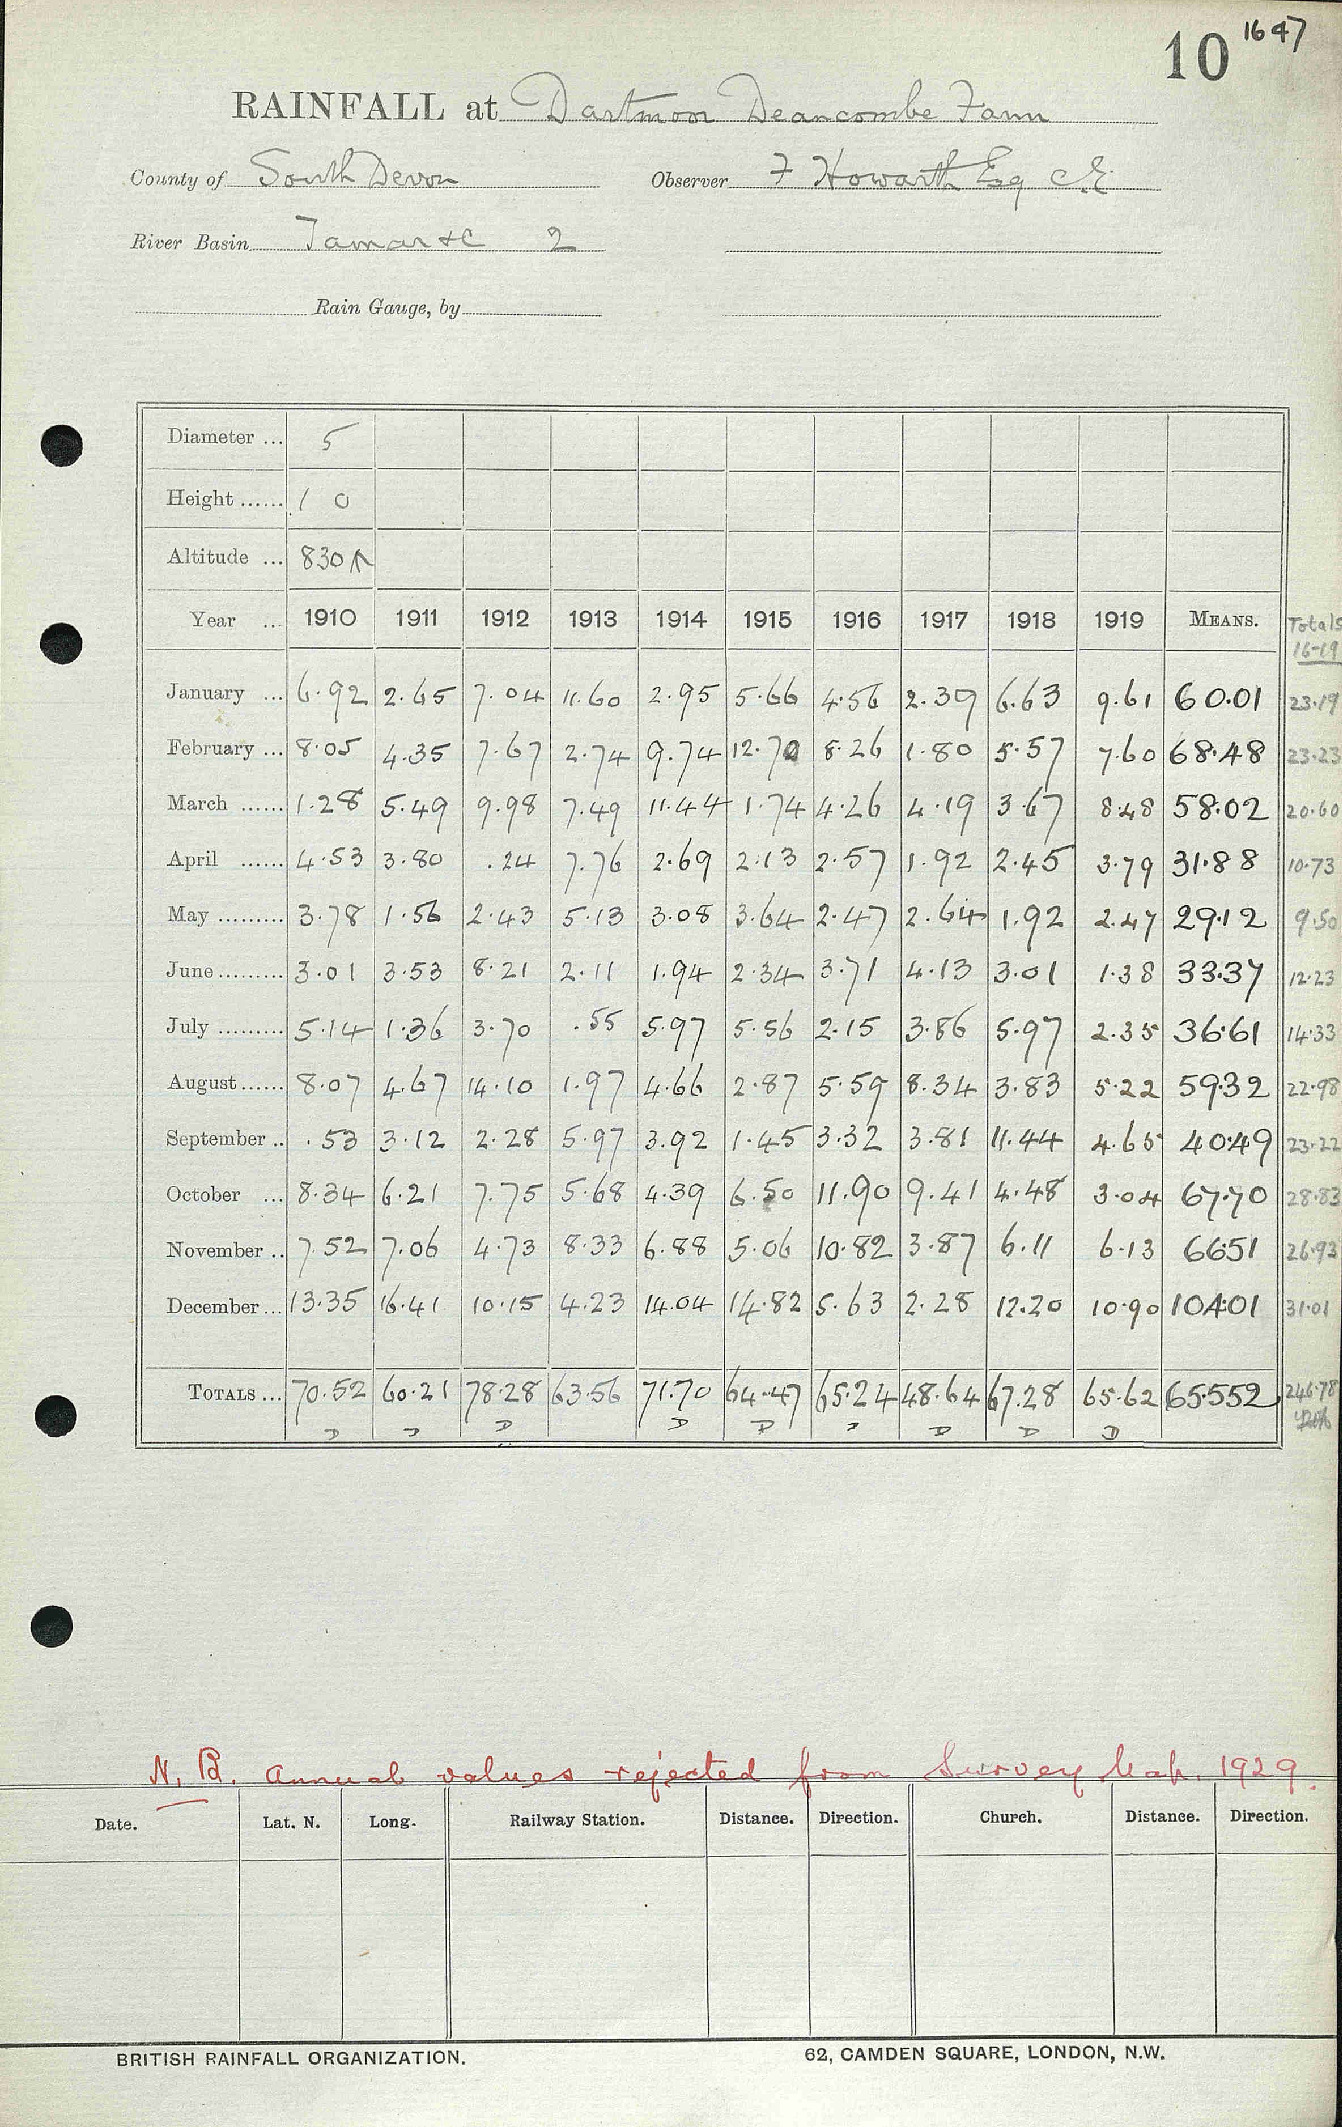 10 1647
RAINFALL at Dartmoor Deancombe Farm
County of South Devon Observer F Howarth Esq C.E
River Basin Tamar &c 2
Rain Gauge, by
Diameter ... 5
Height ...... 1 0
Altitude ... 830
Year ... 1910 1911 1912 1913 1914 1915 1916 1917 1918 1919 MEANS. Totals
16-19
January ... 6.92 2.65 7.04 11.60 2.95 5.66 4.56 2.39 6.63 9.61 60.01 23.19
February ... 8.05 4.35 7.67 2.74 9.74 12.70 8.26 1.80 5.57 7.60 68.48 23.23
March ...... 1.28 5.49 9.98 7.49 11.44 1.74 4.26 4.19 3.67 8.48 58.02 20.60
April ...... 4.53 3.80 .24 7.76 2.69 2.13 2.57 1.92 2.45 3.79 31.88 10.73
May ......... 3.78 1.56 2.43 5.13 3.08 3.64 2.47 2.64 1.92 2.47 29.12 9.50
June ......... 3.01 3.53 8.21 2.11 1.94 2.34 3.71 4.13 3.01 1.38 33.37 12.23
July ......... 5.14 1.36 3.70 .55 5.97 5.56 2.15 3.86 5.97 2.35 36.61 14.33
August ...... 8.07 4.67 14.10 1.97 4.66 2.87 5.59 8.34 3.83 5.22 59.32 22.98
September .. .53 3.12 2.28 5.97 3.92 1.45 3.32 3.81 11.44 4.65 40.49 23.22
October ... 8.34 6.21 7.75 5.68 4.39 6.50 11.90 9.41 4.48 3.04 67.70 28.83
November .. 7.52 7.06 4.73 8.33 6.88 5.06 10.82 3.87 6.11 6.13 66.51 26.93
December ... 13.35 16.41 10.15 4.23 14.04 14.82 5.63 2.28 12.20 10.90 104.01 31.01
TOTALS ... 70.52 60.21 78.28 63.56 71.70 64.47 65.24 48.64 67.28 65.62 655.52 246.78
D D D D D D D D D
N.B. Annual values rejected from Survey Map. 1929.
Date. Lat. N. Long. Railway Station. Distance. Direction. Church. Distance. Direction.
BRITISH RAINFALL ORGANIZATION. 62, CAMDEN SQUARE, LONDON, N.W.